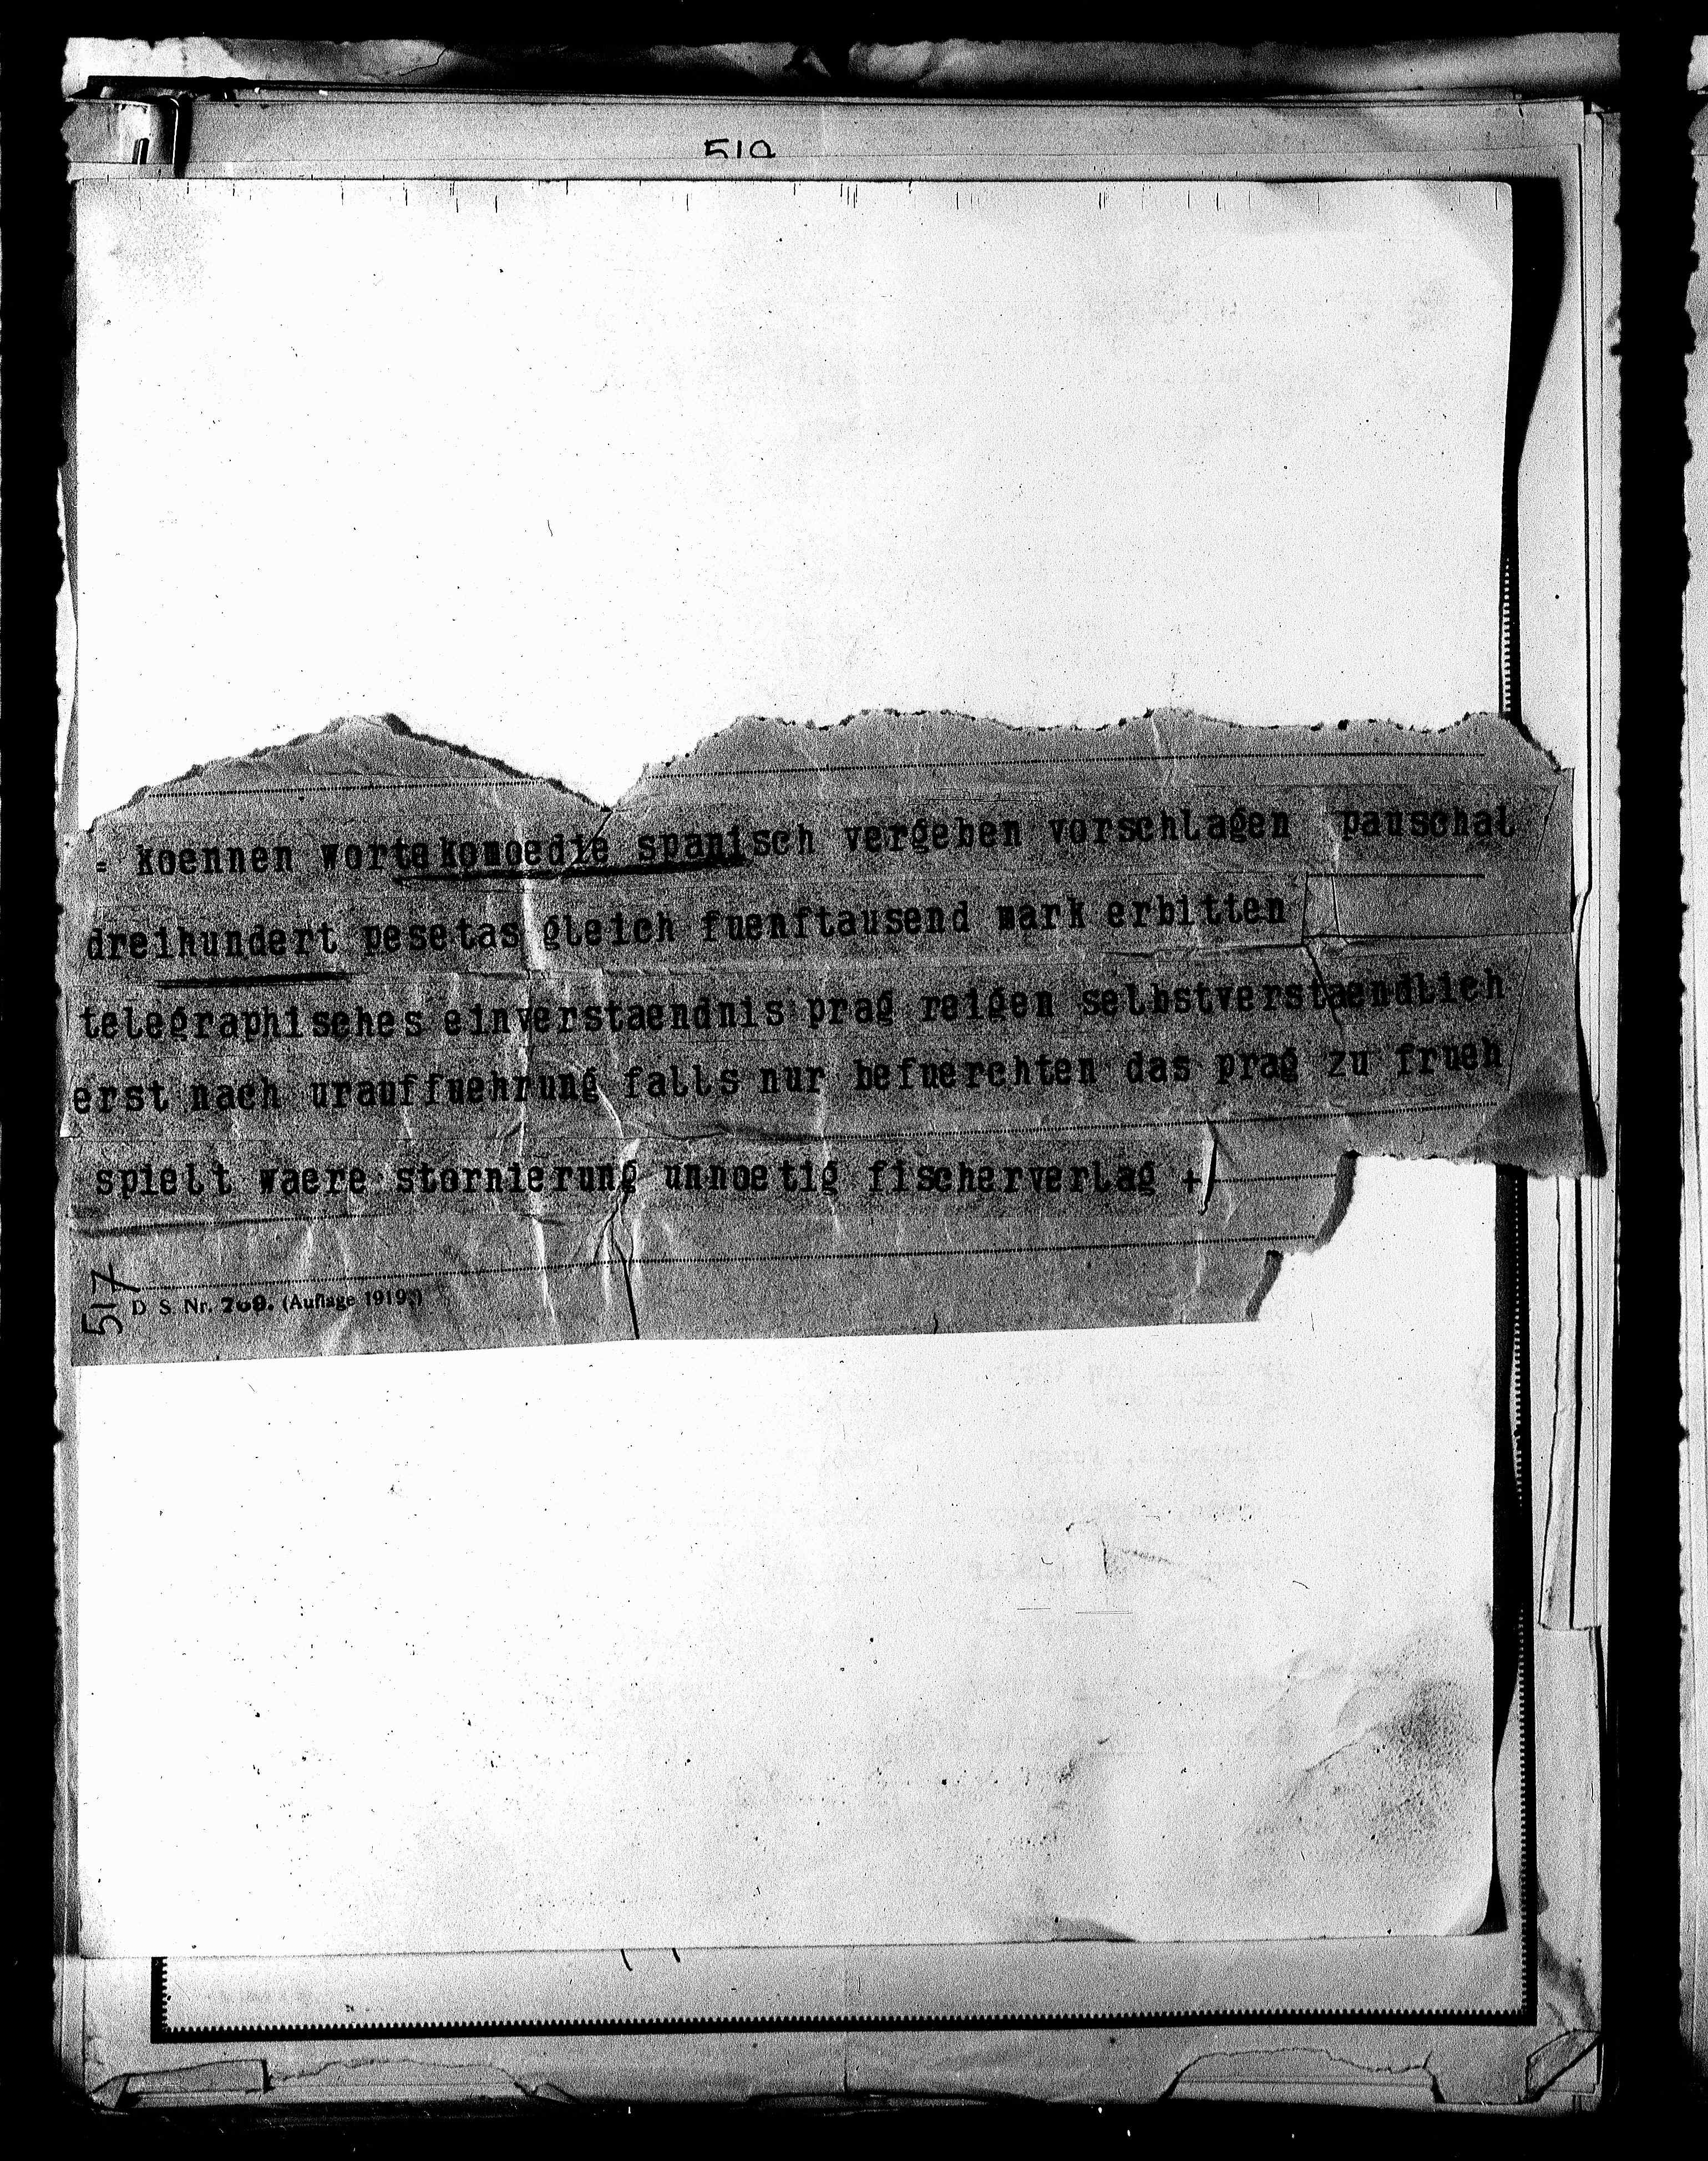 = koennen wortekomoedie spanisch vergeben vorschlagen pauschal
dreihundert pesetas gleich fuenftausend mark erbitten
telegraphisches einverstaendnis prag reigen selbstverstaendlich
erst nach urauffuehrung falls nur befuerchten das prag zu frueh
spielt waere stornierung unnoetig fischerverlag +
517
D. S. Nr. 209. (Auflage 1919.)